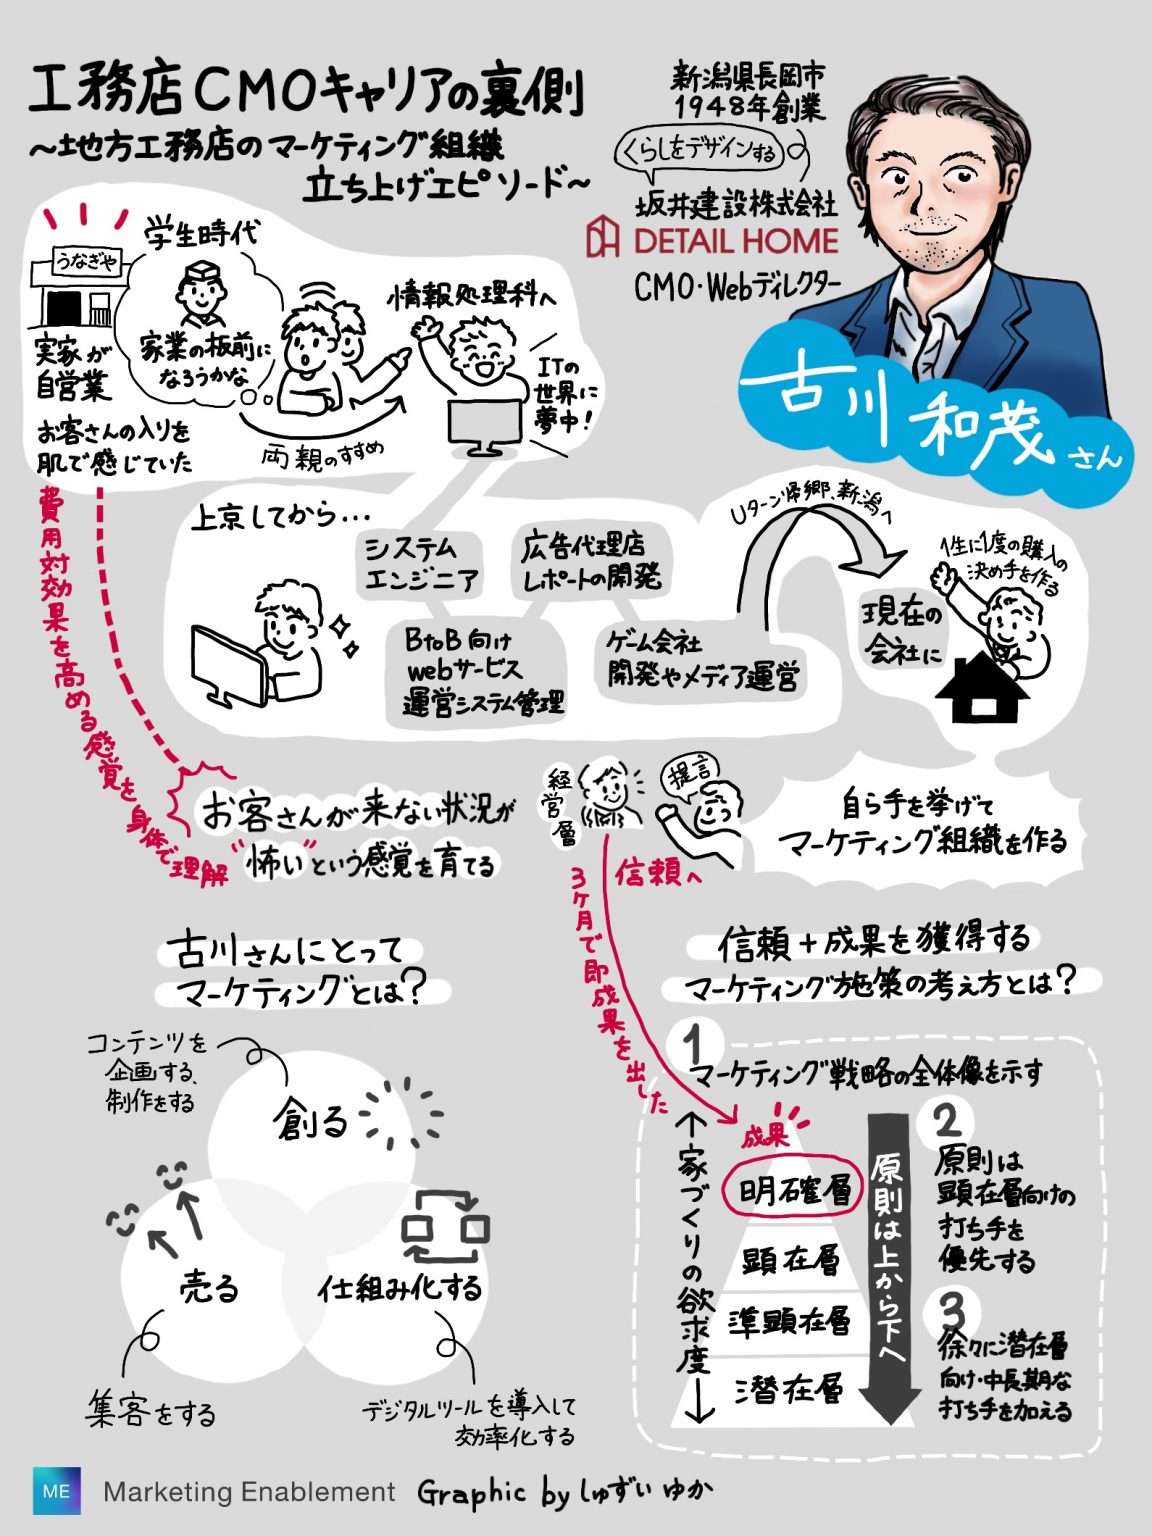 工務店CMOキャリアの裏側
〜地方工務店のマーケティング組織
立ち上げエピソード〜
新潟県長岡市
1948年創業
くらしをデザインする
坂井建設株式会社
DETAIL HOME
CMO・Webディレクター
古川 和茂さん
うなぎや
実家が
自営業
お客さんの入りを
肌で感じていた
学生時代
家業の板前に
なろうかな
両親のすすめ
情報処理科へ
ITの
世界に
夢中!
上京してから...
システム
エンジニア
BtoB向け
webサービス
運営システム管理
広告代理店
レポートの開発
ゲーム会社
開発やメディア運営
Uターン帰郷、新潟へ
現在の
会社に
1生に1度の購入の
決め手を作る
費用対効果を高める感覚を身体で理解
お客さんが来ない状況が
"怖い"という感覚を育てる
経営層
提言
信頼へ
3ヶ月で即成果を出した
自ら手を挙げて
マーケティング組織を作る
古川さんにとって
マーケティングとは?
コンテンツを
企画する、
制作をする
創る
売る
仕組み化する
集客をする
デジタルツールを導入して
効率化する
信頼+成果を獲得する
マーケティング施策の考え方とは?
1
マーケティング戦略の全体像を示す
家づくりの欲求度
成果
明確層
顕在層
準顕在層
潜在層
原則は上から下へ
2
原則は
顕在層向けの
打ち手を
優先する
3
徐々に潜在層
向け・中長期な
打ち手を加える
ME
Marketing Enablement
Graphic by しゅずぃ ゆか